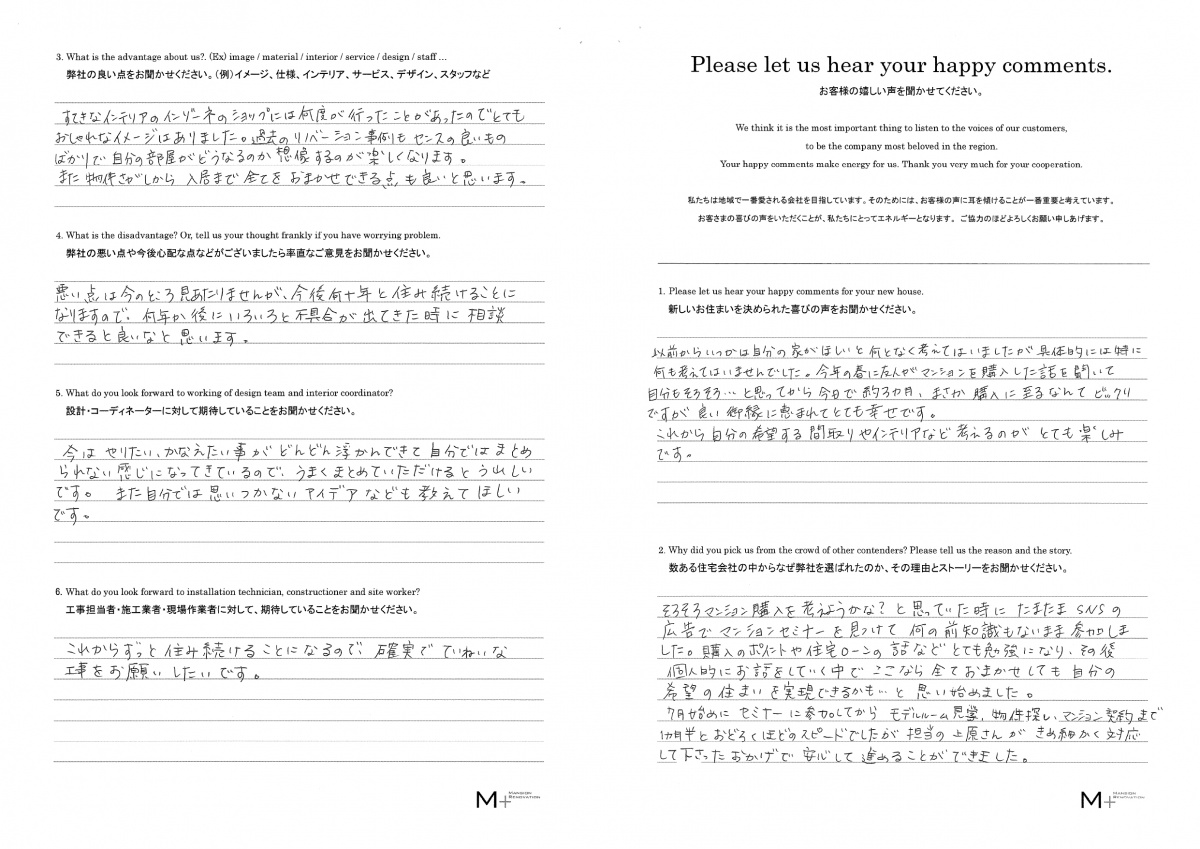 3. What is the advantage about us?. (Ex) image / material / interior / service / design / staff ...
弊社の良い点をお聞かせください。（例）イメージ、仕様、インテリア、サービス、デザイン、スタッフなど
すてきなインテリアのインゾーネのショップには何度か行ったことがあったのでとても
おしゃれなイメージはありました。過去のリノベーション事例もセンスの良いもの
ばかりで自分の部屋がどうなるのか想像するのが楽しくなります。
また物件さがしから入居まで全てをおまかせできる点も良いと思います。
4. What is the disadvantage? Or, tell us your thought frankly if you have worrying problem.
弊社の悪い点や今後心配な点などがございましたら率直なご意見をお聞かせください。
悪い点は今のところ見あたりませんが、今後何十年と住み続けることに
なりますので、何年か後にいろいろと不具合が出てきた時に相談
できると良いなと思います。
5. What do you look forward to working of design team and interior coordinator?
設計・コーディネーターに対して期待していることをお聞かせください。
今はやりたい、かなえたい事がどんどん浮かんできて自分ではまとめ
られない感じになってきているので、うまくまとめていただけるとうれしい
です。 また自分では思いつかないアイデアなども教えてほしい
です。
6. What do you look forward to installation technician, constructioner and site worker?
工事担当者・施工業者・現場作業者に対して、期待していることをお聞かせください。
これからずっと住み続けることになるので確実でていねいな
工事をお願いしたいです。
M+ MANSION RENOVATION
Please let us hear your happy comments.
お客様の嬉しい声を聞かせてください。
We think it is the most important thing to listen to the voices of our customers,
to be the company most beloved in the region.
Your happy comments make energy for us. Thank you very much for your cooperation.
私たちは地域で一番愛される会社を目指しています。そのためには、お客様の声に耳を傾けることが一番重要と考えています。
お客さまの喜びの声をいただくことが、私たちにとってエネルギーとなります。 ご協力のほどよろしくお願い申しあげます。
1. Please let us hear your happy comments for your new house.
新しいお住まいを決められた喜びの声をお聞かせください。
以前からいつかは自分の家がほしいと何となく考えてはいましたが具体的には特に
何も考えてはいませんでした。今年の春に友人がマンションを購入した話を聞いて
自分もそろそろ…と思ってから今日で約3カ月、まさか購入に至るなんてビックリ
ですが良い御縁に恵まれてとても幸せです。
これから自分の希望する間取りやインテリアなど考えるのがとても楽しみ
です。
2. Why did you pick us from the crowd of other contenders? Please tell us the reason and the story.
数ある住宅会社の中からなぜ弊社を選ばれたのか、その理由とストーリーをお聞かせください。
そろそろマンション購入を考えようかな？と思っていた時にたまたまSNSの
広告でマンションセミナーを見つけて何の前知識もないまま参加しま
した。購入のポイントや住宅ローンの話などとても勉強になり、その後
個人的にお話をしていく中でここなら全ておまかせしても自分の
希望の住まいを実現できるかも…と思い始めました。
7月始めにセミナーに参加してからモデルルーム見学、物件探し、マンション契約まで
1カ月半とおどろくほどのスピードでしたが担当の上原さんがきめ細かく対応
して下さったおかげで安心して進めることができました。
M+ MANSION RENOVATION